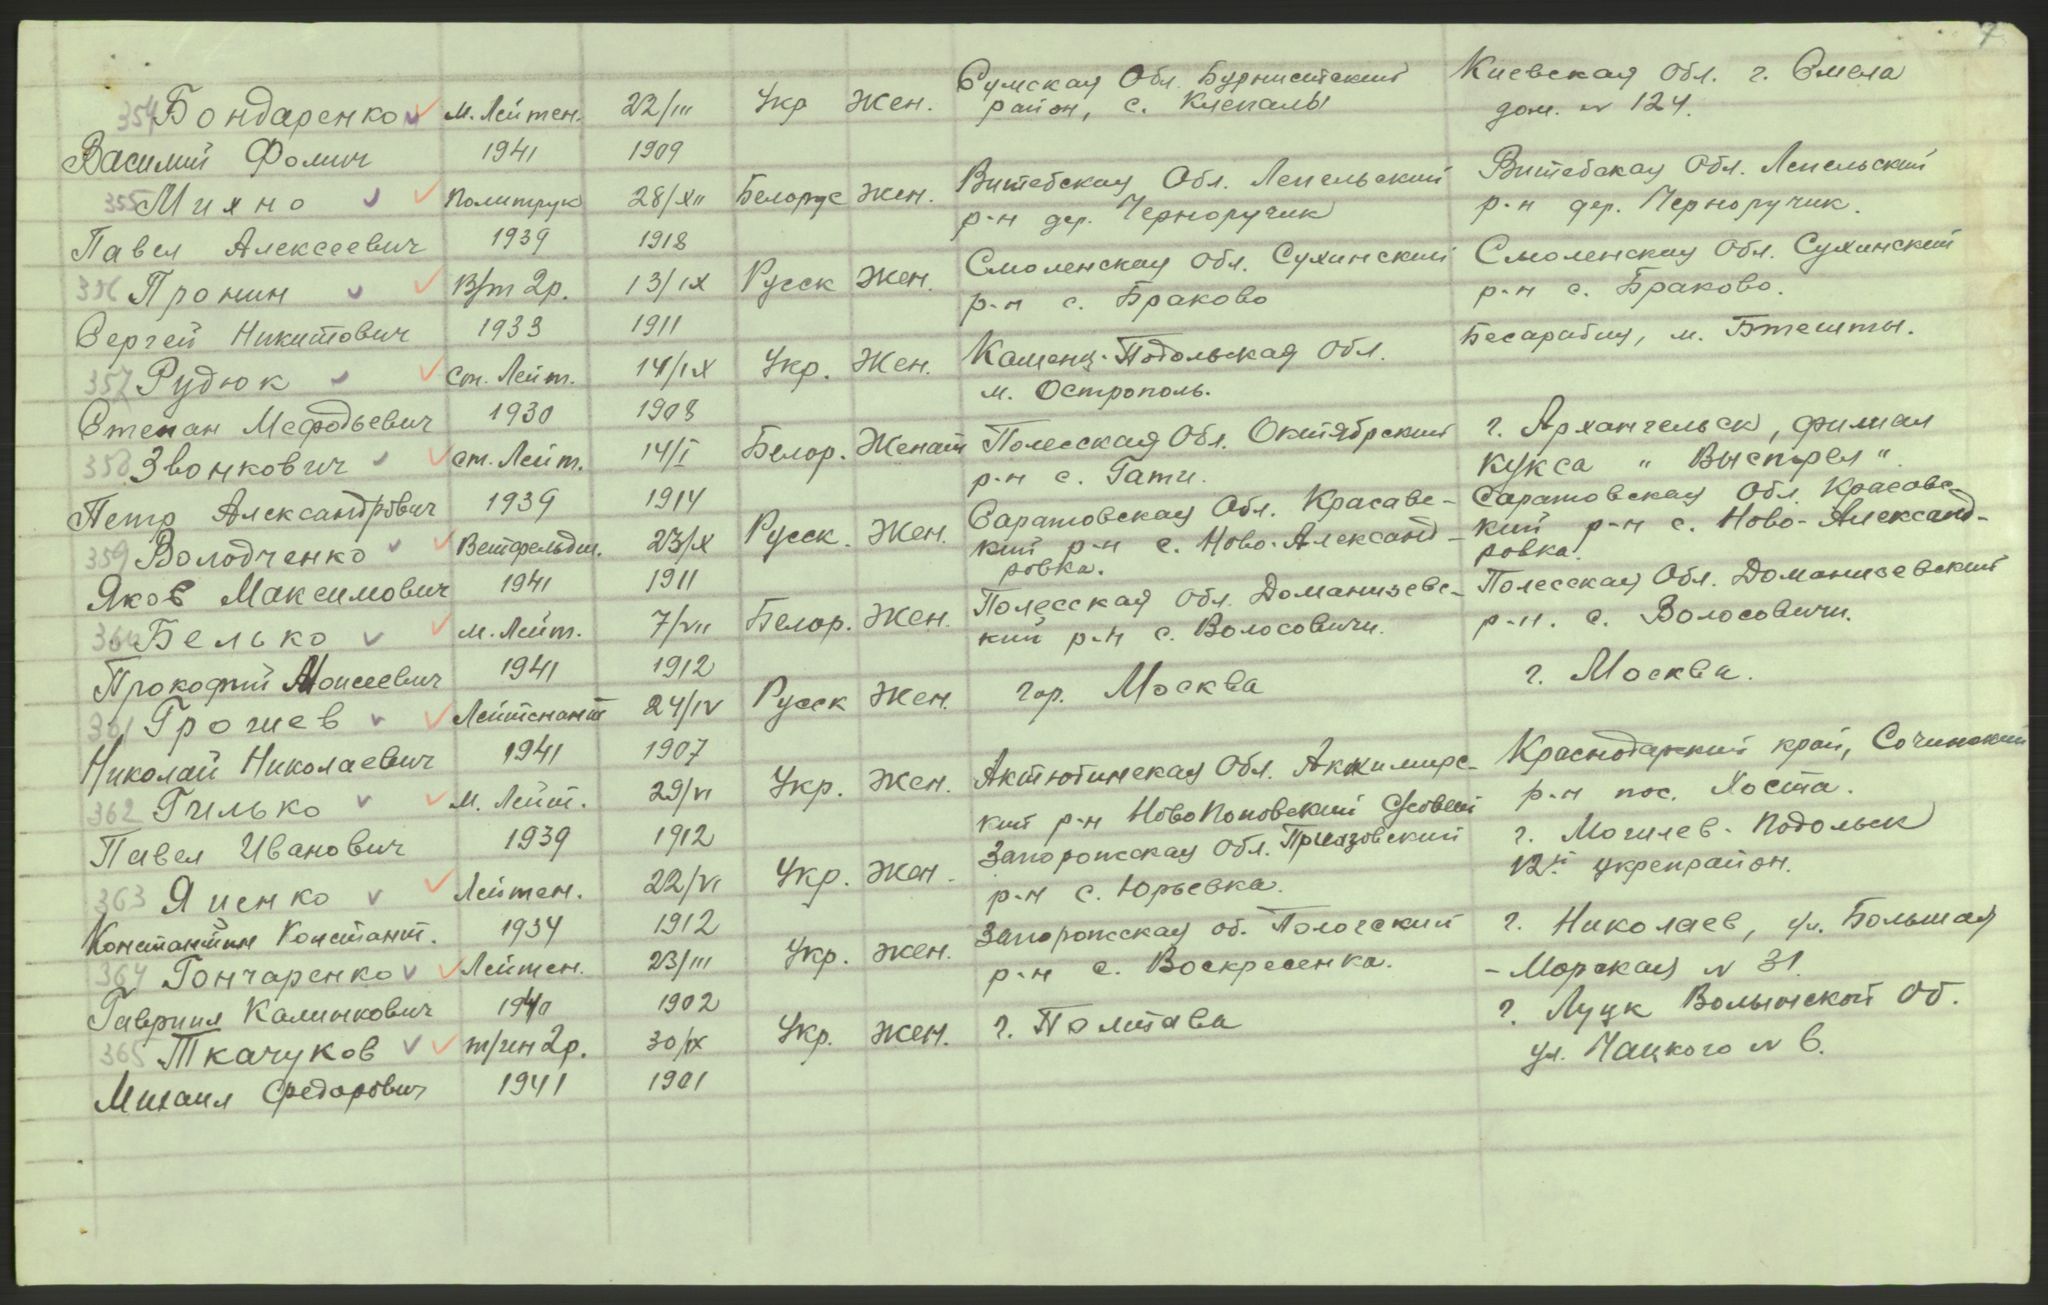 7
Сумская Обл. Бурнисетский Киевская Обл. г. Смела
354 Бондаренко м. Лейтен. 22/III Укр Жен. район, с. Клепалы дом. № 124.
Василий Фомич 1941 1909
Витебская Обл. Лепельский Витебская Обл. Лепельский
355 Михно Политрук 28/XII Белорус Жен. р-н дер. Черноручик р-н дер. Черноручик.
Павел Алексеевич 1939 1918
Смоленская Обл. Сухинский Смоленская Обл. Сухинский
356 Пронин В/т 2р. 13/IX Русск Жен. р-н с. Браково р-н с. Браково.
Сергей Никитович 1933 1911
Каменц-Подольская Обл. Бесарабия, м. Бтешты.
357 Рудюк Ст. Лейт. 14/IX Укр. Жен. м. Острополь.
Степан Мефодьевич 1930 1908
Полесская Обл. Октябрский г. Архангельск, филиал
358 Звонкович ст. Лейт. 14/I Белор. Женат р-н с. Гати. кукса " Выстрел "
Петр Александрович 1939 1914
Саратовская Обл. Красавс- Саратовская Обл. Красавс-
359 Володченко Ветфельдш. 23/X Русск. Жен. кий р-н с. Ново-Александ- кий р-н с. Ново-Александ-
ровка. ровка.
Яков Максимович 1941 1911
Полесская Обл. Доманизевс- Полесская Обл. Доманизевский
360 Белько м. Лейт. 7/VII Белор. Жен. кий р-н с. Волосовичи. р-н. с. Волосовичи.
Прокофий Моисеевич 1941 1912
361 Грошев Лейтенант 24/IV Русск Жен. гор. Москва г. Москва.
Николай Николаевич 1941 1907
Актютинская Обл. Акжимирс- Краснодарский край, Сочинский
362 Гилько м. Лейт. 29/VI Укр. Жен. кий р-н НовоПоповский С/совет р-н пос. Хоста.
Павел Иванович 1939 1912
Запорожская Обл. Приазовский г. Могилев-Подольск
363 Яценко Лейтен. 22/VI Укр. Жен. р-н с. Юрьевка. 12й укрепрайон.
Константин Констант. 1934 1912
Запорожская об. Пологский г. Николаев, ул. Большая
364 Гончаренко Лейтен. 23/III Укр. Жен. р-н с. Воскресенка. -Морская № 31.
Гавриил Калинкович 1940 1902
г. Полтава г. Луцк Волынской Об.
365 Ткачуков т/ин 2р. 30/IX Укр. Жен. ул. Чацкого № 6.
Михаил Федорович 1941 1901